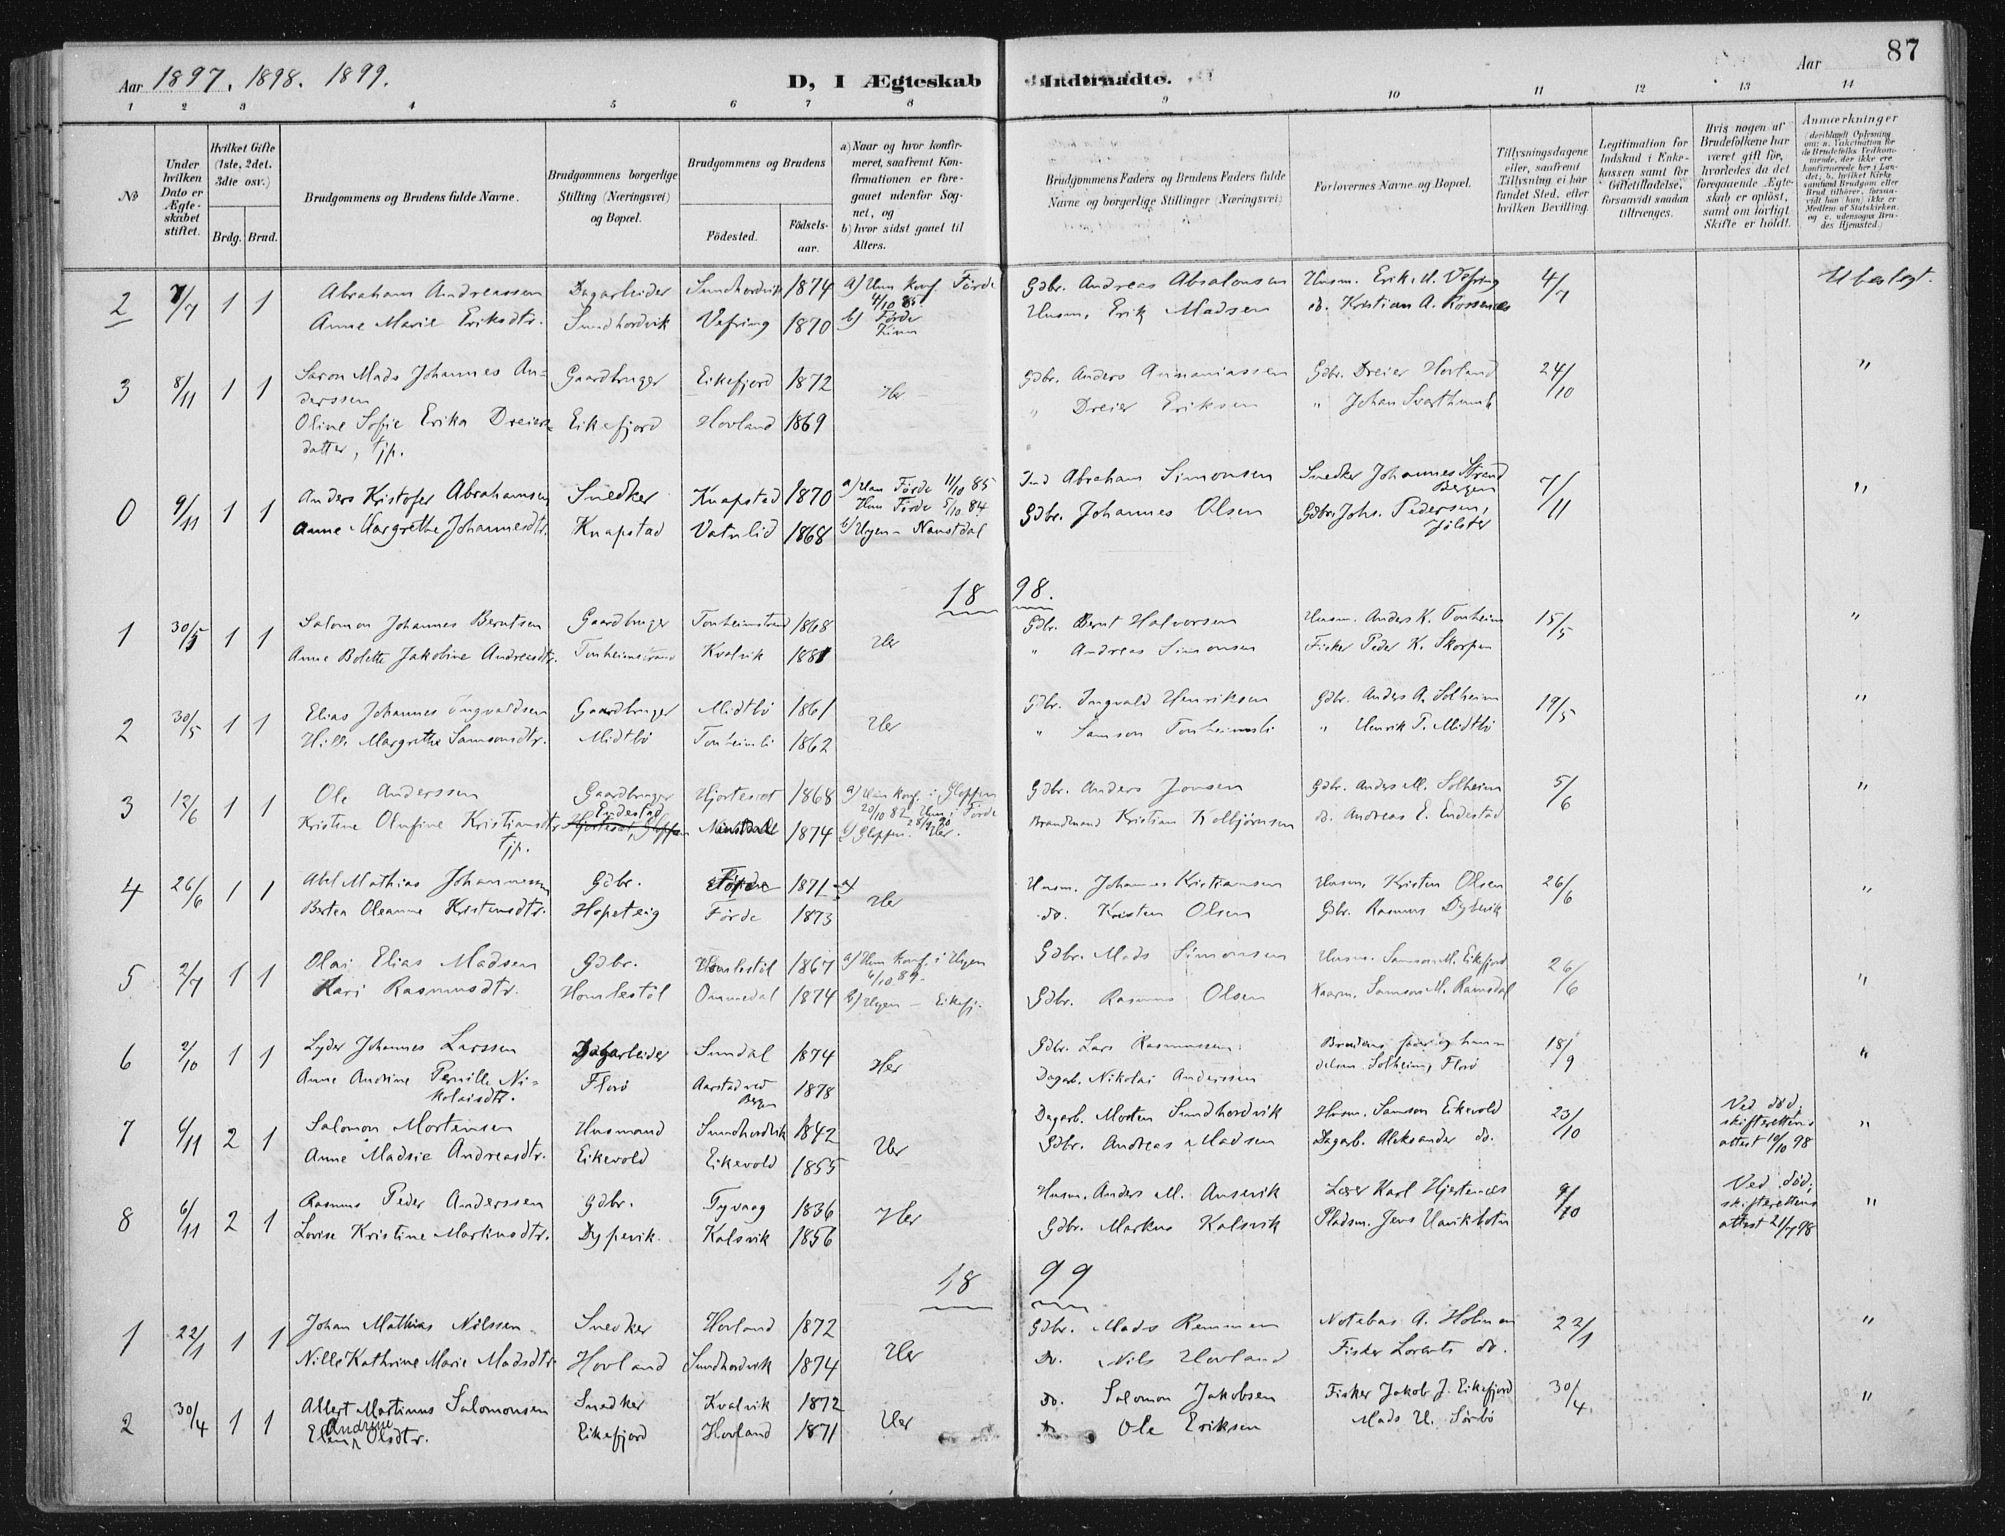 87
Aar 1897. 1898. 1899.
D, I Ægteskab Indtraadte.
Aar
1 2 3 4 5 6 7 8 9 10 11 12 13 14
№
Under hvilken Dato er Ægteskabet stiftet.
Hvilket Gifte (1ste, 2det, 3die osv.)
Brdg. Brud.
Brudgommens og Brudens fulde Navne.
Brudgommens borgerlige Stilling (Næringsvei) og Bopæl.
Brudgommens og Brudens
Fødested.
Fødselsaar.
a) Naar og hvor konfirmeret, saafremt Konfirmationen er foregaaet udenfor Sognet, og
b) hvor sidst gaaet til Alters.
Brudgommens Faders og Brudens Faders fulde Navne og borgerlige Stillinger (Næringsvei)
Forlovernes Navne og Bopæl.
Tillysningsdagene eller, saafremt Tillysning ei har fundet Sted, efter hvilken Bevilling.
Legitimation for Indskud i Enkekassen samt for Giftetilladelse, forsaavidt saadan tiltrænges.
Hvis nogen af Brudefolkene har været gift før, hvorledes da det foregaaende Ægteskab er opløst, samt om lovligt Skifte er holdt.
Anmærkninger
2 7/7 1 1 Abraham Andreassen Dagarbeider Sundhordvik 1874 a) Hun konf. Førde 4/10 85 Gdbr. Andreas Absalonsen Husm. Erik M. Vefring 4/7 Ubeslegt.
Anne Marie Eriksdtr. Sundhordvik Vefring 1870 b) Førde Kinn Husm. Erik Madsen do. Kristian A.
3 8/11 1 1 Saron Mads Johannes Anderssen Gaardbruger Eikefjord 1872 Her Gdbr. Anders Annaniassen Gdbr. Dreier Hovland 24/10 "
Oline Sofie Erika Dreiersdatter, tjp. Eikefjord Hovland 1869 " Dreier Eriksen " Johan Svarthumle
0 9/11 1 1 Anders Kristofer Abrahamsen Snedker Knapstad 1870 a) Han Førde 11/10 85 Ind Abraham Simonsen Snedker Johannes Strand Bergen 7/11 "
Anne Margrethe Johannesdtr. Knapstad Vatnlid 1868 Hun Førde 5/10 84 b) Hyen - Naustdal Gdbr. Johannes Olsen Gdbr. Johs. Pedersen, Jølster
1898.
1 30/5 1 1 Salomon Johannes Berntsen Gaardbruger Tonheimstrand 1868 Her Gdbr. Bernt Halvorsen Husm. Anders K. Tonheim 15/5 "
Anne Bolette Jakobine Andreasdtr. Tonheimstrand Kvalvik 1881 " Andreas Simonsen Fisker Peder K. Skorpen
2 30/5 1 1 Elias Johannes Ingvaldsen Gaardbruger Midtbø 1861 Her Gdbr. Ingvald Henriksen Gdbr. Anders A. Solheim 19/5 "
Hille Margrethe Samsonsdtr. Midtbø Tonheimli 1862 " Samson Tonheimsli " Henrik P. Midtbø
3 12/6 1 1 Ole Anderssen Gaardbruger Hjorteset 1868 a) Han konf. i Gloppen 20/10 82 Hun i Førde 28/9 90 Gdbr. Anders Jonsen Gdbr. Anders M. Solheim 5/6 "
Kristine Olufine Kristiansdtr. tjp. Endestad Hjorteset, Gloppen Naustdal 1874 b) Gloppen. Her. Brandmand Kristian Kolbjørnsen do. Andreas E. Endestad
4 26/6 1 1 Abel Mathias Johannessen Gdbr. Førde 1871 Her Husm. Johannes Kristiansen Husm. Kristen Olsen 26/6 "
Berten Oleanne Kristensdtr. Hopeteig Førde 1873 do. Kristen Olsen Gdbr. Rasmus Dybevik
5 2/7 1 1 Olai Elias Madsen Gdbr. Homlestøl 1867 a) Hun konf. i Hyen 6/10 89. Gdbr. Mads Simonsen Husm. Samson M. Eikefjord 26/6 "
Kari Rasmusdtr. Homlestøl Ommedal 1874 b) Hyen - Eikefj. Gdbr. Rasmus Olsen Kaarm. Samson M. Ramsdal
6 2/10 1 1 Lyder Johannes Larssen Dagarbeider Sundal 1874 Her Gdbr. Lars Rasmussen Brudens fader og handelsm. Solheim, Florø 18/9 "
Anne Andrine Pernille Nikolaisdtr. Florø Aarstad ved Bergen 1878 Dagarb. Nikolai Anderssen
7 6/11 2 1 Salomon Mortensen Husmand Sundhordvik 1842 Her Dagarb. Morten Sundhordvik Husm. Samson Eikevold 23/10 Ved død, skifterettens attest 10/10 98 "
Anne Madsie Andreasdtr. Eikevold Eikevold 1855 Gdbr. Andreas Madsen Dagarb. Aleksander do.
8 6/11 2 1 Rasmus Peder Anderssen Gdbr. Tyvaag 1836 Her Husm. Anders M. Ansevik Lærer Karl Hjertenæs 9/10 Ved død, skifterettens attest 21/7 98 "
Lovise Kristine Markusdtr. Dypevik Kalsvik 1856 Gdbr. Markus Kalsvik Pladsm. Jens Unvikholm
1899
1 22/1 1 1 Johan Mathias Nilssen Snedker Hovland 1872 Her Gdbr. Mads Remmen Notebas A. Holmen 22/1 "
Nille Kathrine Marie Madsdtr. Hovland Sundhordvik 1874 Do. Nils Hovland Fisker Lorents do.
2 30/4 1 1 Albert Martinus Salomonsen Snedker Kvalvik 1872 Her do. Salomon Jakobsen Fisker Jakob J. Eikefjord 30/4 "
Elen Andrine Olsdtr. Eikefjord Hovland 1871 Do Ole Eriksen Mads H. Sørbø